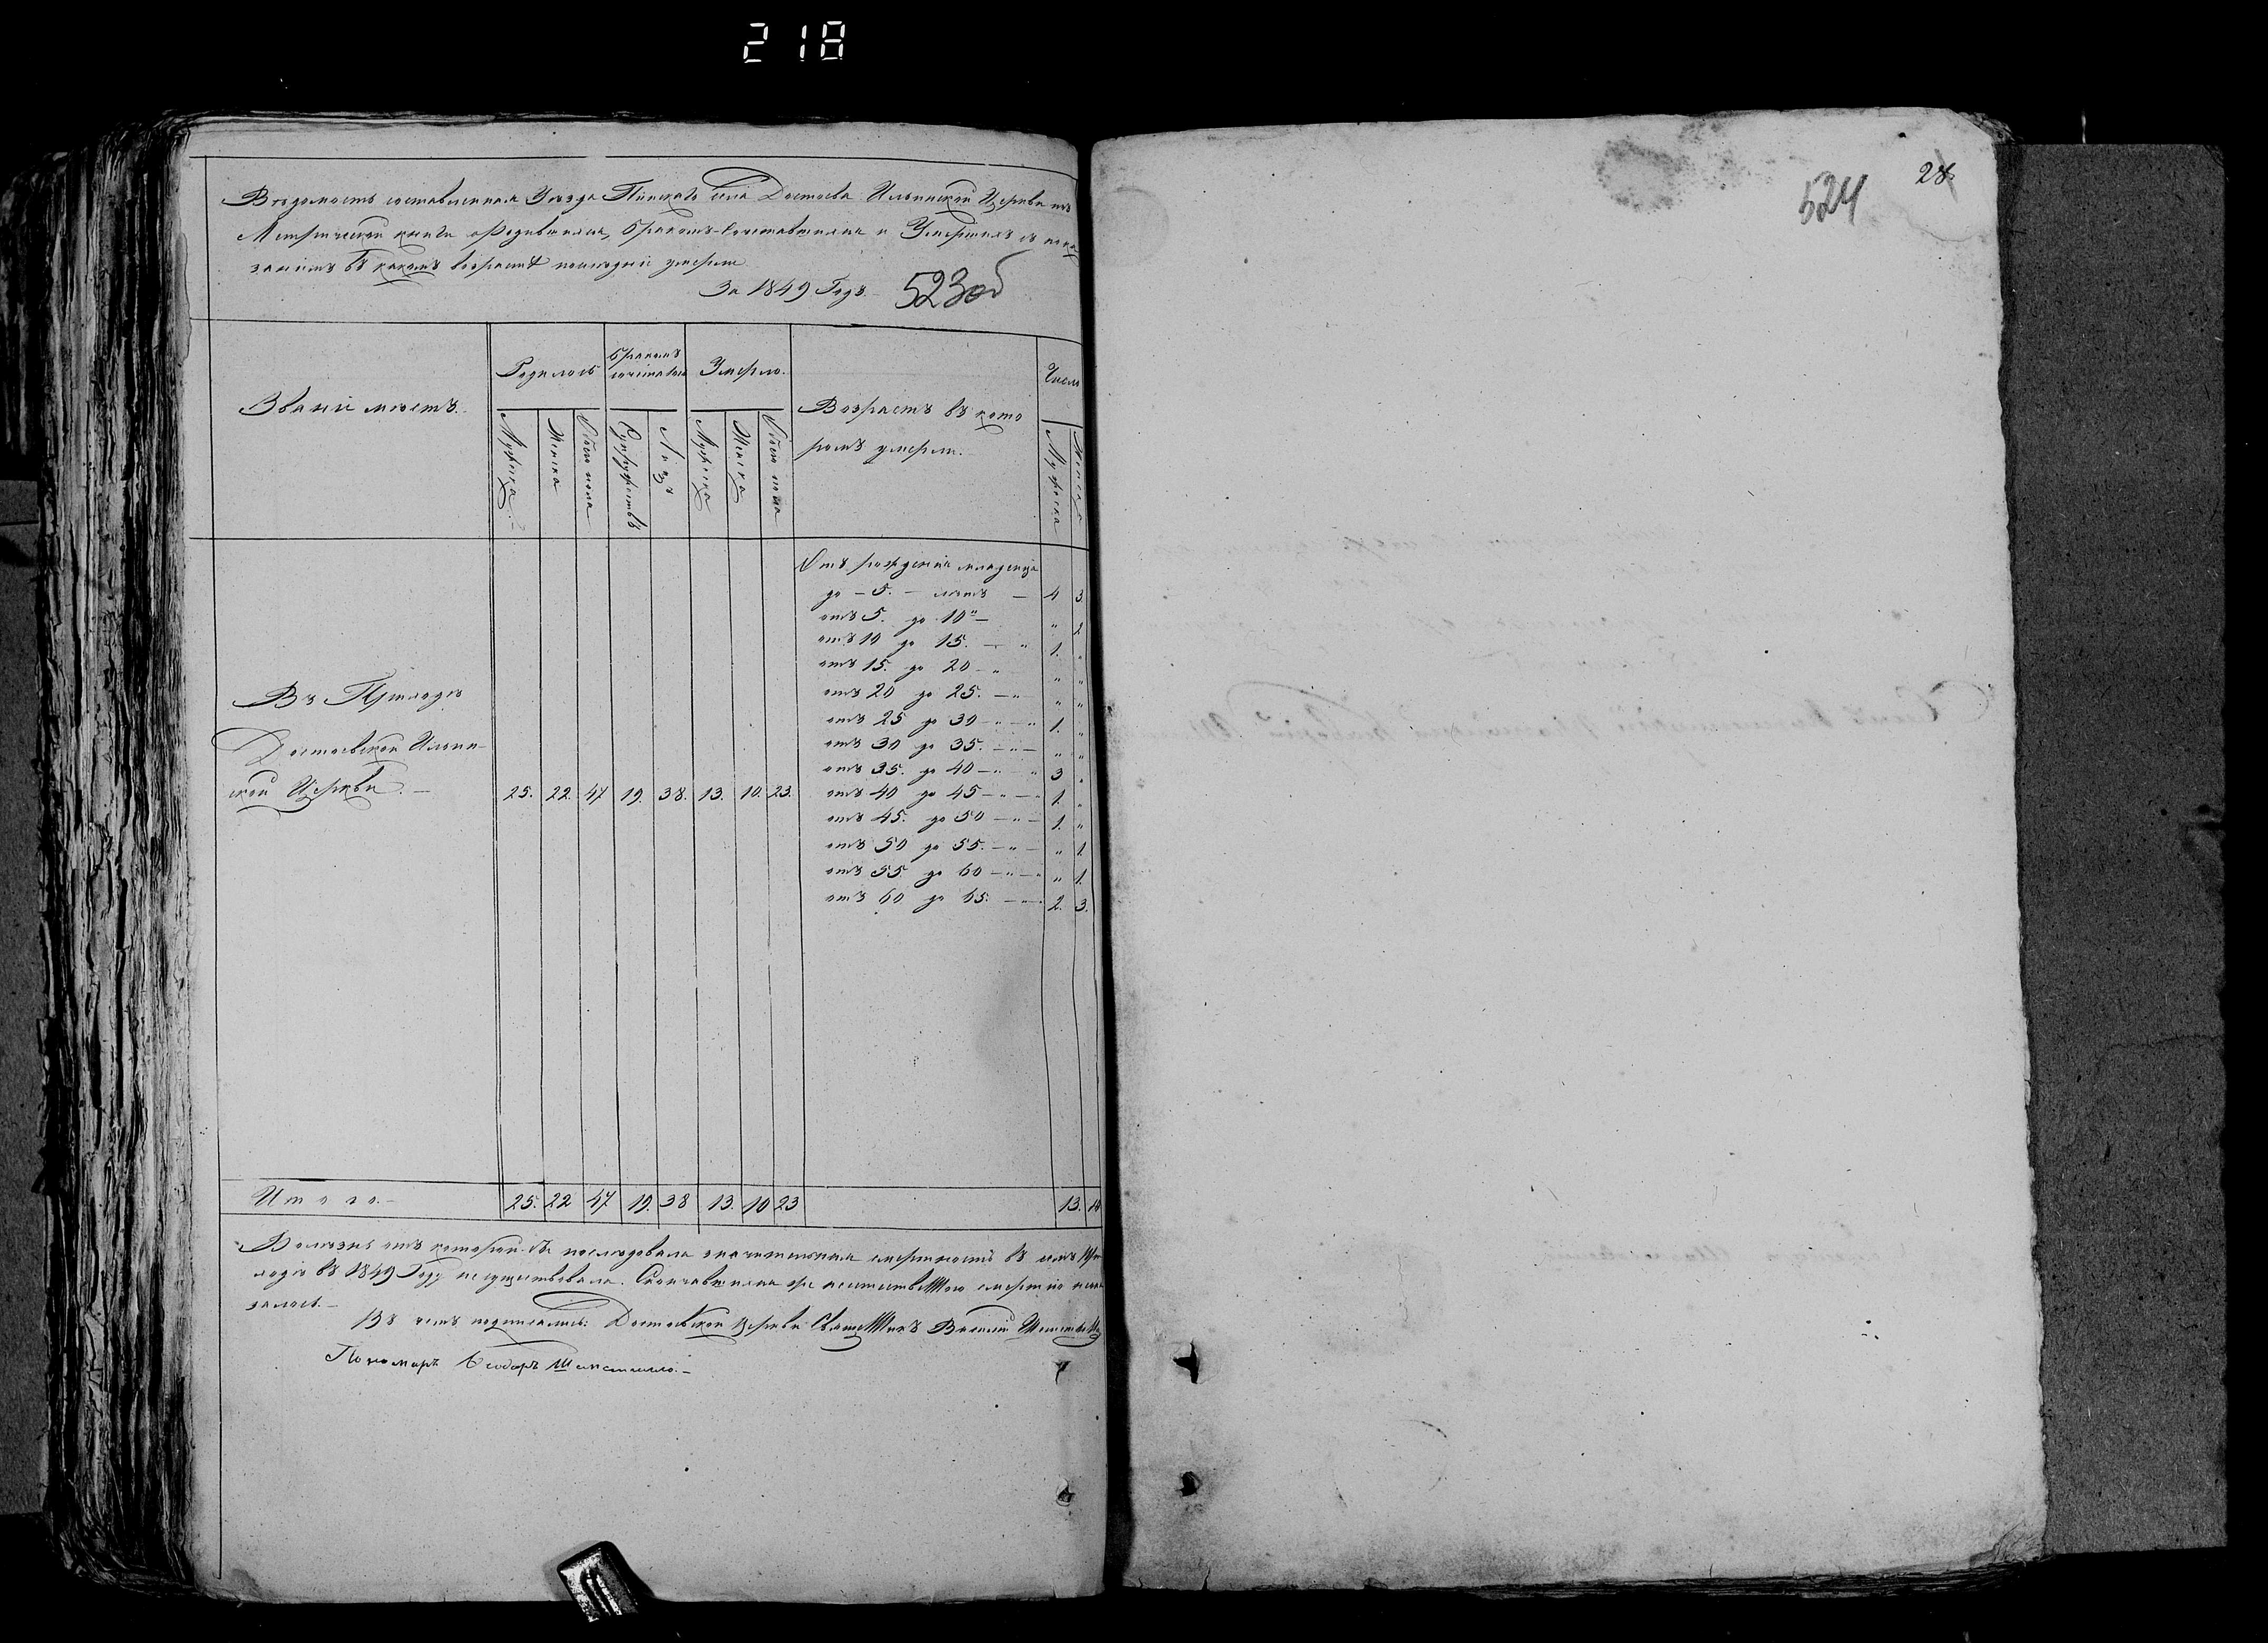 218
Вѣдомость составленная Уѣзда Пинскаго села Достоева Ильинской Церкви изъ
Метрической книги о Родившихся, бракомъ Сочетавшихся и Умершихъ съ пока
заніемъ въ какомъ возрастѣ послѣдніе умерли
За 1849 Годъ.
523об
Званіе мѣстъ.
Родилось
бракомъ сочеталось
Умерло.
Возрастъ въ кото
ромъ умерли.
Число
Мужеска
Женска
Обоего пола
Супружествъ
Лицъ
Мужеска
Женска
Обоего пола
Мужеска
Женска
Отъ рожденія младенца
до – 5. – лѣтъ – 4 3.
отъ 5. до 10 " – " 2
отъ 10 до 15. – " 1. "
отъ 15. до 20 – " " "
отъ 20 до 25. – " – " "
отъ 25 до 30 – " – " 1. "
отъ 30 до 35. – " – " "
отъ 35. до 40 – " – " 3 "
отъ 40 до 45 – " – " 1. "
отъ 45. до 50 – " – 1. "
отъ 50 до 55. – " – " 1.
отъ 55. до 60 – " – " " 1.
отъ 60 до 65. – " – 2. 3.
Въ Приходѣ
Достоевской Ильин-
ской Церкви. –
25. 22. 47 19. 38. 13. 10. 23.
Итого. – 25. 22 47 19. 38 13. 10 23 13. 10
Болезнь отъ которой бы последовала значительная смертность въ семъ При
ходѣ въ 1849 Году не существовала. Скончавшихся же неестественною смертію не ока
залось. –
Въ чемъ подписались: Достоевской Церкви Священникъ Василий
Пономарь Ѳеодоръ
524
28